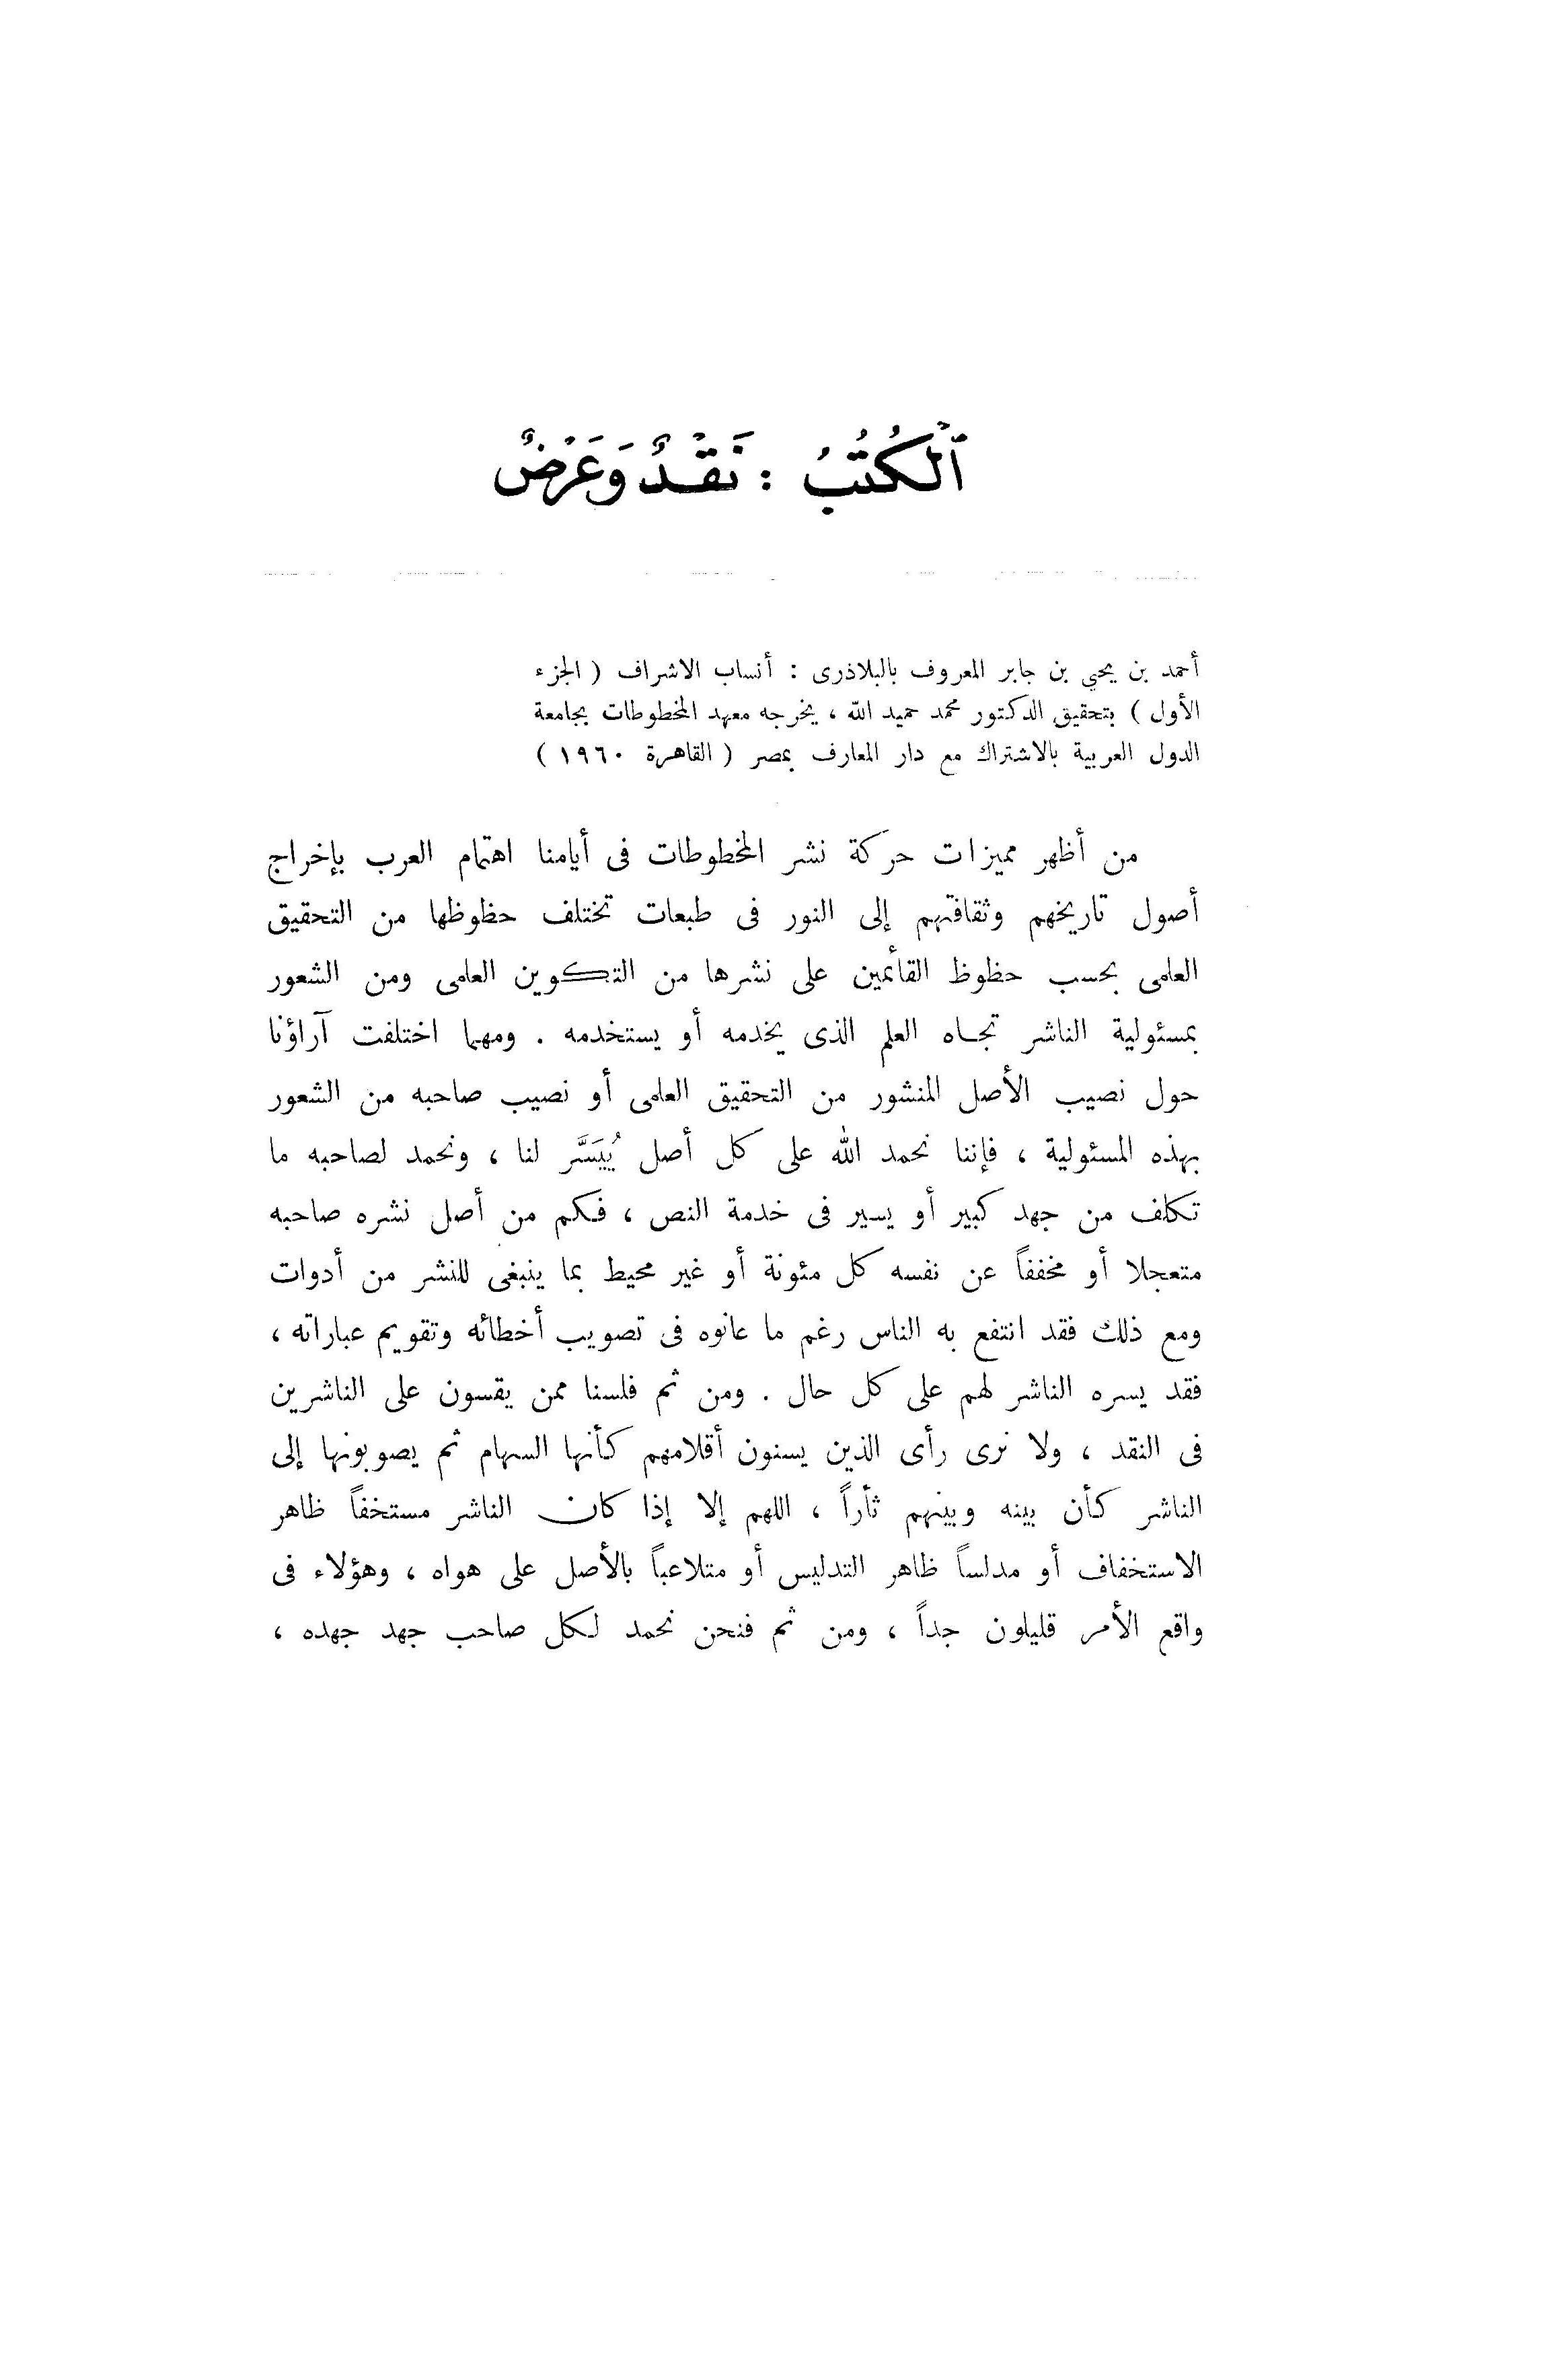 ٱلْكُتُبُ : نَقْدٌ وَعَرْضٌ
أحمد بن يحيي بن جابر المعروف بالبلاذرى : أنساب الاشراف ( الجزء
الأول ) بتحقيق الدكتور محمد حميد الله ، يخرجه معهد المخطوطات بجامعة
الدول العربية بالاشتراك مع دار المعارف بمصر ( القاهرة ١٩٦٠ )
من أظهر مميزات حركة نشر المخطوطات فى أيامنا اهتمام العرب بإخراج
أصول تاريخهم وثقافتهم إلى النور فى طبعات تختلف حظوظها من التحقيق
العلمى بحسب حظوظ القائمين على نشرها من التكوين العلمى ومن الشعور
بمسئولية الناشر تجاه العلم الذى يخدمه أو يستخدمه . ومهما اختلفت آراؤنا
حول نصيب الأصل المنشور من التحقيق العلمى أو نصيب صاحبه من الشعور
بهذه المسئولية ، فإننا نحمد الله على كل أصل يُيَسَّر لنا ، ونحمد لصاحبه ما
تكلف من جهد كبير أو يسير فى خدمة النص ، فكم من أصل نشره صاحبه
متعجلا أو مخففاً عن نفسه كل مئونة أو غير محيط بما ينبغى للنشر من أدوات
ومع ذلك فقد انتفع به الناس رغم ما عانوه فى تصويب أخطائه وتقويم عباراته ،
فقد يسره الناشر لهم على كل حال . ومن ثم فلسنا ممن يقسون على الناشرين
فى النقد ، ولا نرى رأى الذين يسنون أقلامهم كأنها السهام ثم يصوبونها إلى
الناشر كأن بينه وبينهم ثأراً ، اللهم إلا إذا كان الناشر مستخفاً ظاهر
الاستخفاف أو مدلساً ظاهر التدليس أو متلاعباً بالأصل على هواه ، وهؤلاء فى
واقع الأمر قليلون جداً ، ومن ثم فنحن نحمد لكل صاحب جهد جهده ،